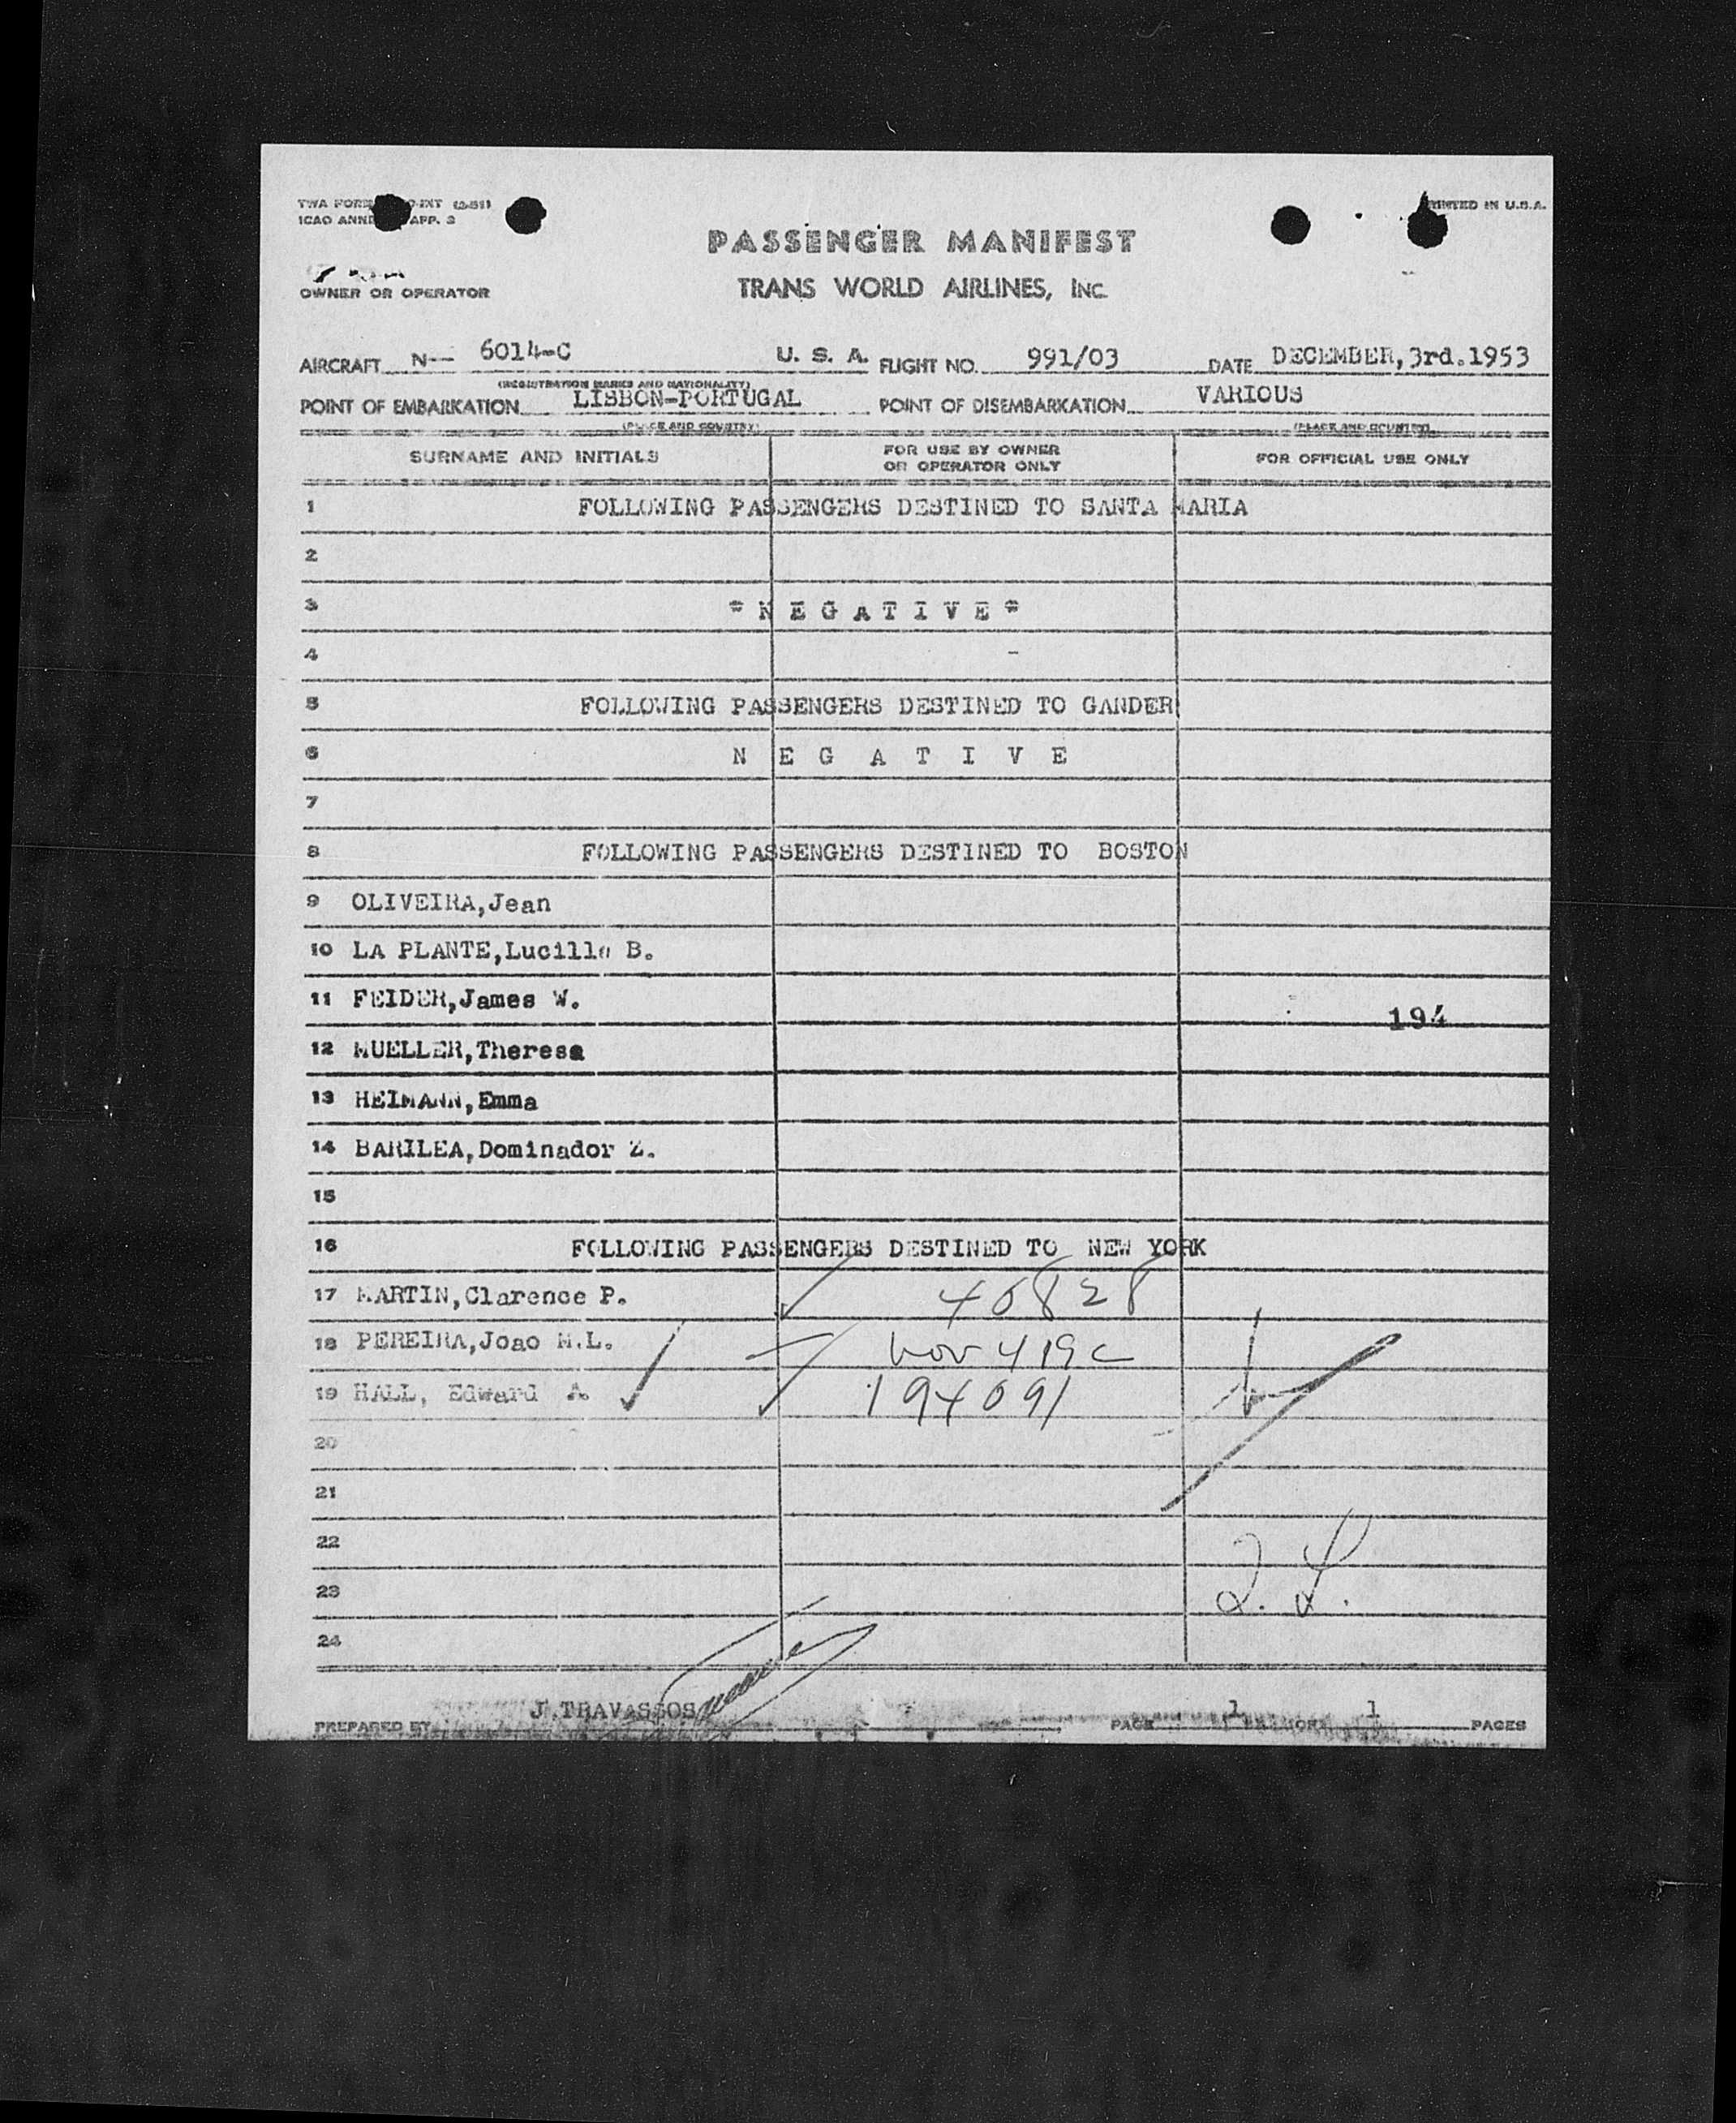 TWA FORM INT (2-51)
ICAO ANNEX APP. 2
PRINTED IN U.S.A.
PASSENGER MANIFEST
TRANS WORLD AIRLINES, INC.
OWNER OR OPERATOR
AIRCRAFT N-- 6014-C U. S. A. FLIGHT NO. 991/03 DATE DECEMBER, 3rd.1953
(REGISTRATION MARKS AND NATIONALITY)
POINT OF EMBARKATION LISBON-PORTUGAL POINT OF DISEMBARKATION VARIOUS
(PLACE AND COUNTRY) (PLACE AND COUNTRY)
SURNAME AND INITIALS FOR USE BY OWNER OR OPERATOR ONLY FOR OFFICIAL USE ONLY
1 FOLLOWING PASSENGERS DESTINED TO SANTA MARIA
2
3 *N E G A T I V E*
4 -
5 FOLLOWING PASSENGERS DESTINED TO GANDER
6 N E G A T I V E
7
8 FOLLOWING PASSENGERS DESTINED TO BOSTON
9 OLIVEIRA,Jean
10 LA PLANTE,Lucille B.
11 FEIDER,James W.
194
12 MUELLER,Theresa
13 HEIMANN,Emma
14 BARILEA,Dominador Z.
15
16 FOLLOWING PASSENGERS DESTINED TO NEW YORK
17 MARTIN,Clarence P. 46828
18 PEREIRA,Joao M.L.
19 HALL, Edward A. 194091
20
21
22
23
24
PREPARED BY J.TRAVASSOS PAGE 1 1 PAGES